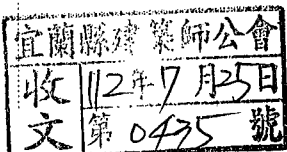 宜蘭縣建築師公會
收文
112年7月25日
第0435號